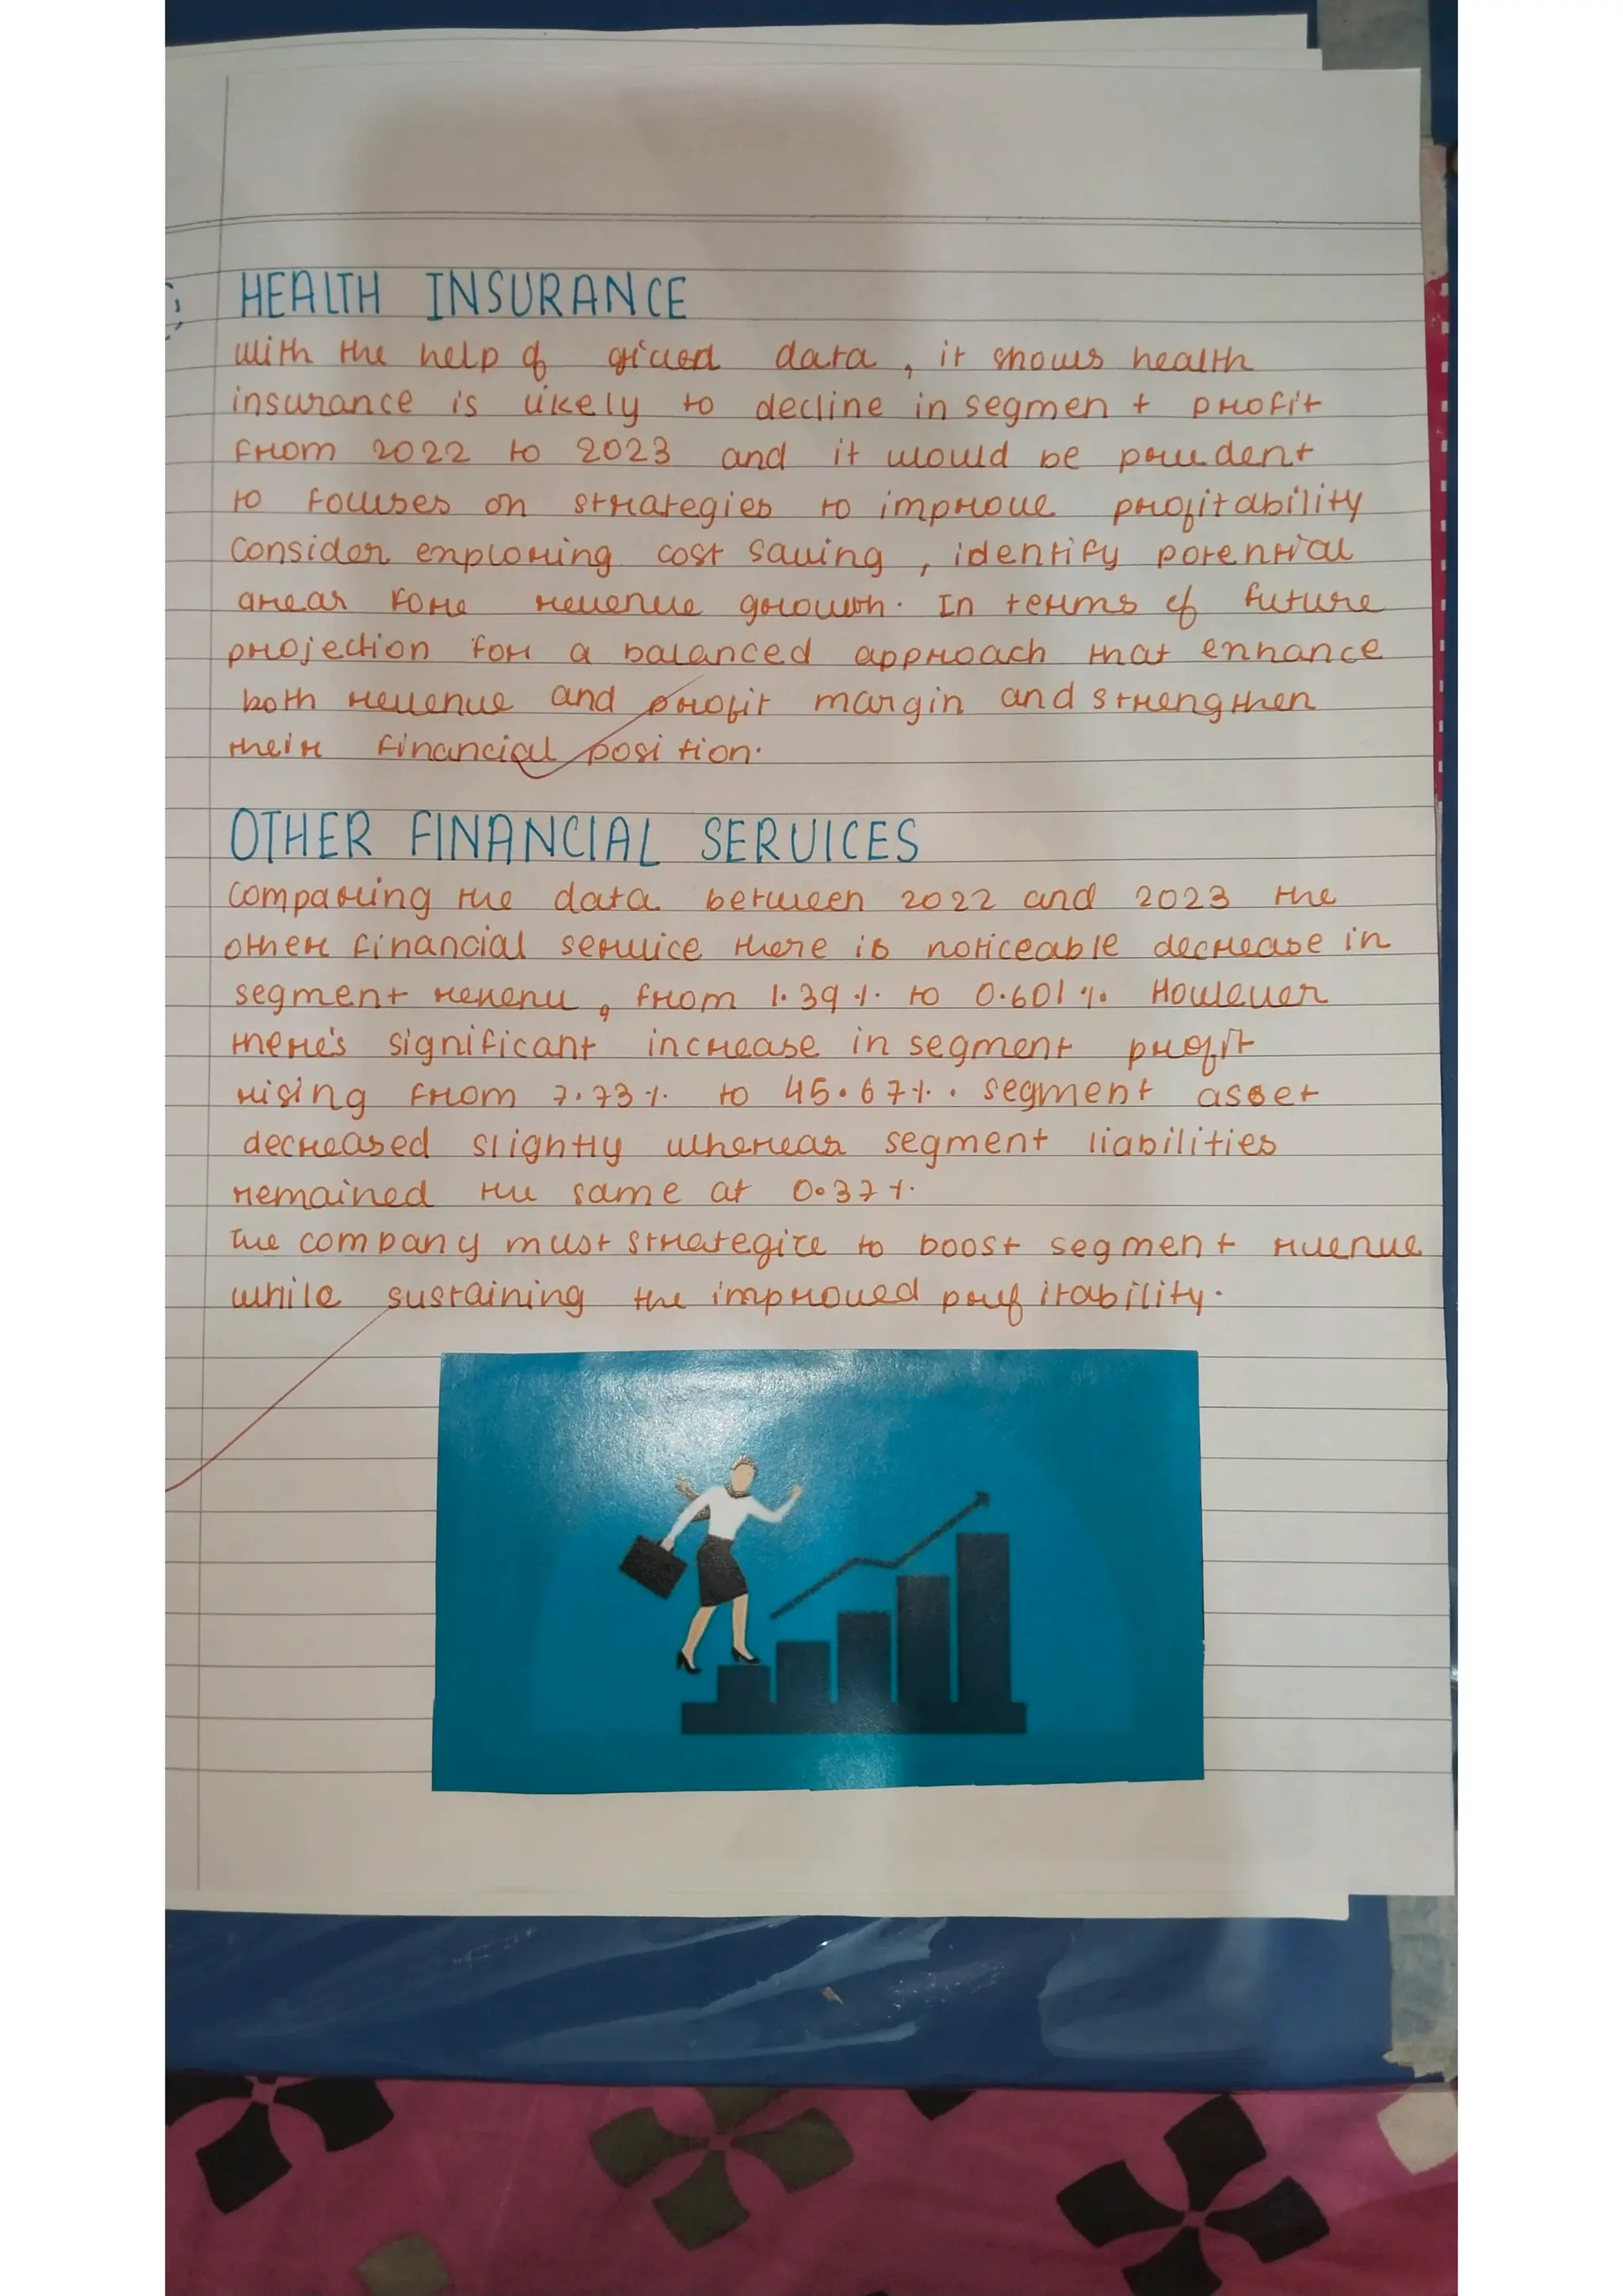 HEALTH INSURANCE
with the help of gived data, it shows health
insurance is likely to decline in segment profit
from 2022 to 2023 and it would be prudent
to focuses on strategies to improve profitability
Consider exploring cost saving, identify potential
areas fore revenue growth. In terms of future
projection for a balanced approach that enhance
both revenue and profit margin and strengthen
their financial position.
OTHER FINANCIAL SERVICES
Comparing the data between 2022 and 2023 the
other financial service there is noticeable decrease in
segment revenu, from 1.39% to 0.601% However
there's significant increase in segment profit
rising from 7.73% to 45.67%. segment asset
decreased slightly whereas segment liabilities
remained the same at 0.37%.
The company must strategize to boost segment revenue
while sustaining the improved profitability.